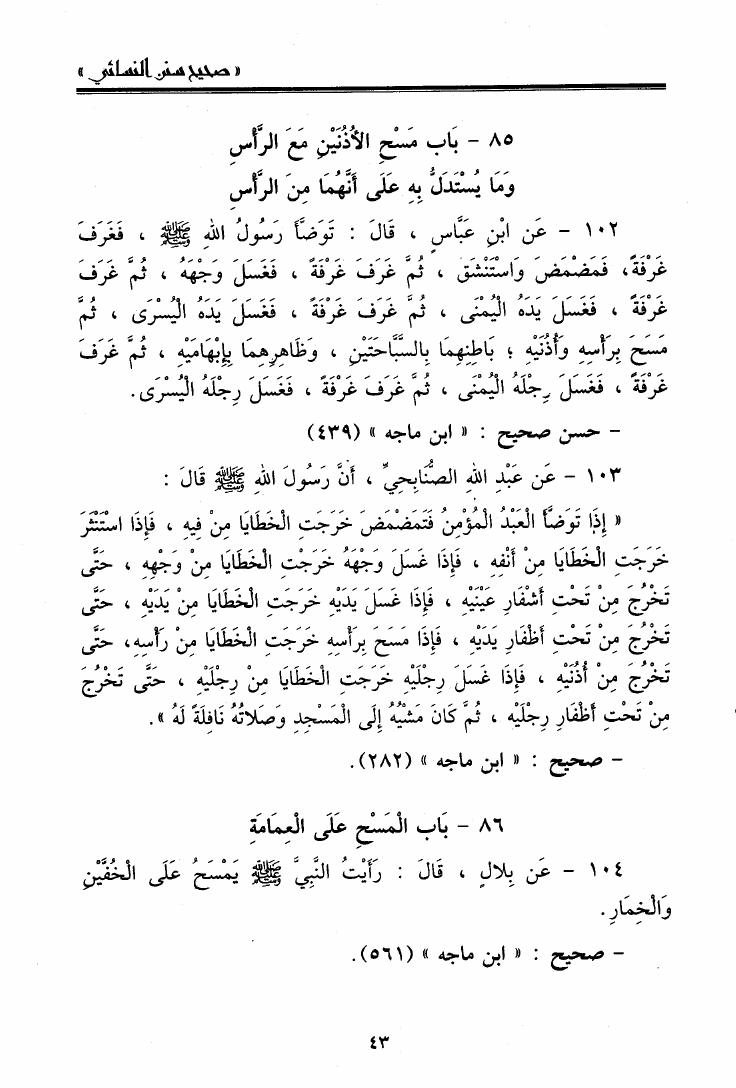 « صحيح سنن النسائي »
٨٥ - بَاب مَسْحِ الأُذُنَيْنِ مَعَ الرَّأْسِ
وَمَا يُسْتَدَلُّ بِهِ عَلَى أَنَّهُمَا مِنَ الرَّأْسِ
١٠٢ - عَن ابْنِ عَبَّاسٍ ، قَالَ : تَوَضَّأَ رَسُولُ اللهِ ﷺ ، فَغَرَفَ
غَرْفَةً، فَمَضْمَضَ وَاسْتَنْشَقَ ، ثُمَّ غَرَفَ غَرْفَةً ، فَغَسَلَ وَجْهَهُ ، ثُمَّ غَرَفَ
غَرْفَةً ، فَغَسَلَ يَدَهُ الْيُمْنَى ، ثُمَّ غَرَفَ غَرْفَةً ، فَغَسَلَ يَدَهُ الْيُسْرَى ، ثُمَّ
مَسَحَ بِرَأْسِهِ وَأُذُنَيْهِ ؛ بَاطِنِهِمَا بِالسَّبَّاحَتَيْنِ ، وَظَاهِرِهِمَا بِإِبْهَامَيْهِ ، ثُمَّ غَرَفَ
غَرْفَةً ، فَغَسَلَ رِجْلَهُ الْيُمْنَى ، ثُمَّ غَرَفَ غَرْفَةً ، فَغَسَلَ رِجْلَهُ الْيُسْرَى.
- حسن صحيح : « ابن ماجه » (٤٣٩)
١٠٣ - عَن عَبْدِ اللهِ الصُّنَابِحِيِّ ، أَنَّ رَسُولَ اللهِ ﷺ قَالَ :
« إِذَا تَوَضَّأَ الْعَبْدُ الْمُؤْمِنُ فَتَمَضْمَضَ خَرَجَتِ الْخَطَايَا مِنْ فِيهِ ، فَإِذَا اسْتَنْثَرَ
خَرَجَتِ الْخَطَايَا مِنْ أَنْفِهِ ، فَإِذَا غَسَلَ وَجْهَهُ خَرَجْتِ الْخَطَايَا مِنْ وَجْهِهِ ، حَتَّى
تَخْرُجَ مِنْ تَحْتِ أَشْفَارِ عَيْنَيْهِ ، فَإِذَا غَسَلَ يَدَيْهِ خَرَجَتِ الْخَطَايَا مِنْ يَدَيْهِ ، حَتَّى
تَخْرُجَ مِنْ تَحْتِ أَظْفَارِ يَدَيْهِ ، فَإِذَا مَسَحَ بِرَأْسِهِ خَرَجَتِ الْخَطَايَا مِنْ رَأْسِهِ، حَتَّى
تَخْرُجَ مِنْ أُذُنَيْهِ ، فَإِذَا غَسَلَ رِجْلَيْهِ خَرَجَتِ الْخَطَايَا مِنْ رِجْلَيْهِ ، حَتَّى تَخْرُجَ
مِنْ تَحْتِ أَظْفَارِ رِجْلَيْهِ ، ثُمَّ كَانَ مَشْيُهُ إِلَى الْمَسْجِدِ وَصَلاَتُهُ نَافِلَةً لَهُ ».
- صحيح : « ابن ماجه » (٢٨٢).
٨٦ - بَاب الْمَسْحِ عَلَى الْعِمَامَةِ
١٠٤ - عَن بِلاَلٍ ، قَالَ : رَأَيْتُ النَّبِيَّ ﷺ يَمْسَحُ عَلَى الْخُفَّيْنِ
وَالْخِمَارِ.
- صحيح : « ابن ماجه » (٥٦١).
٤٣